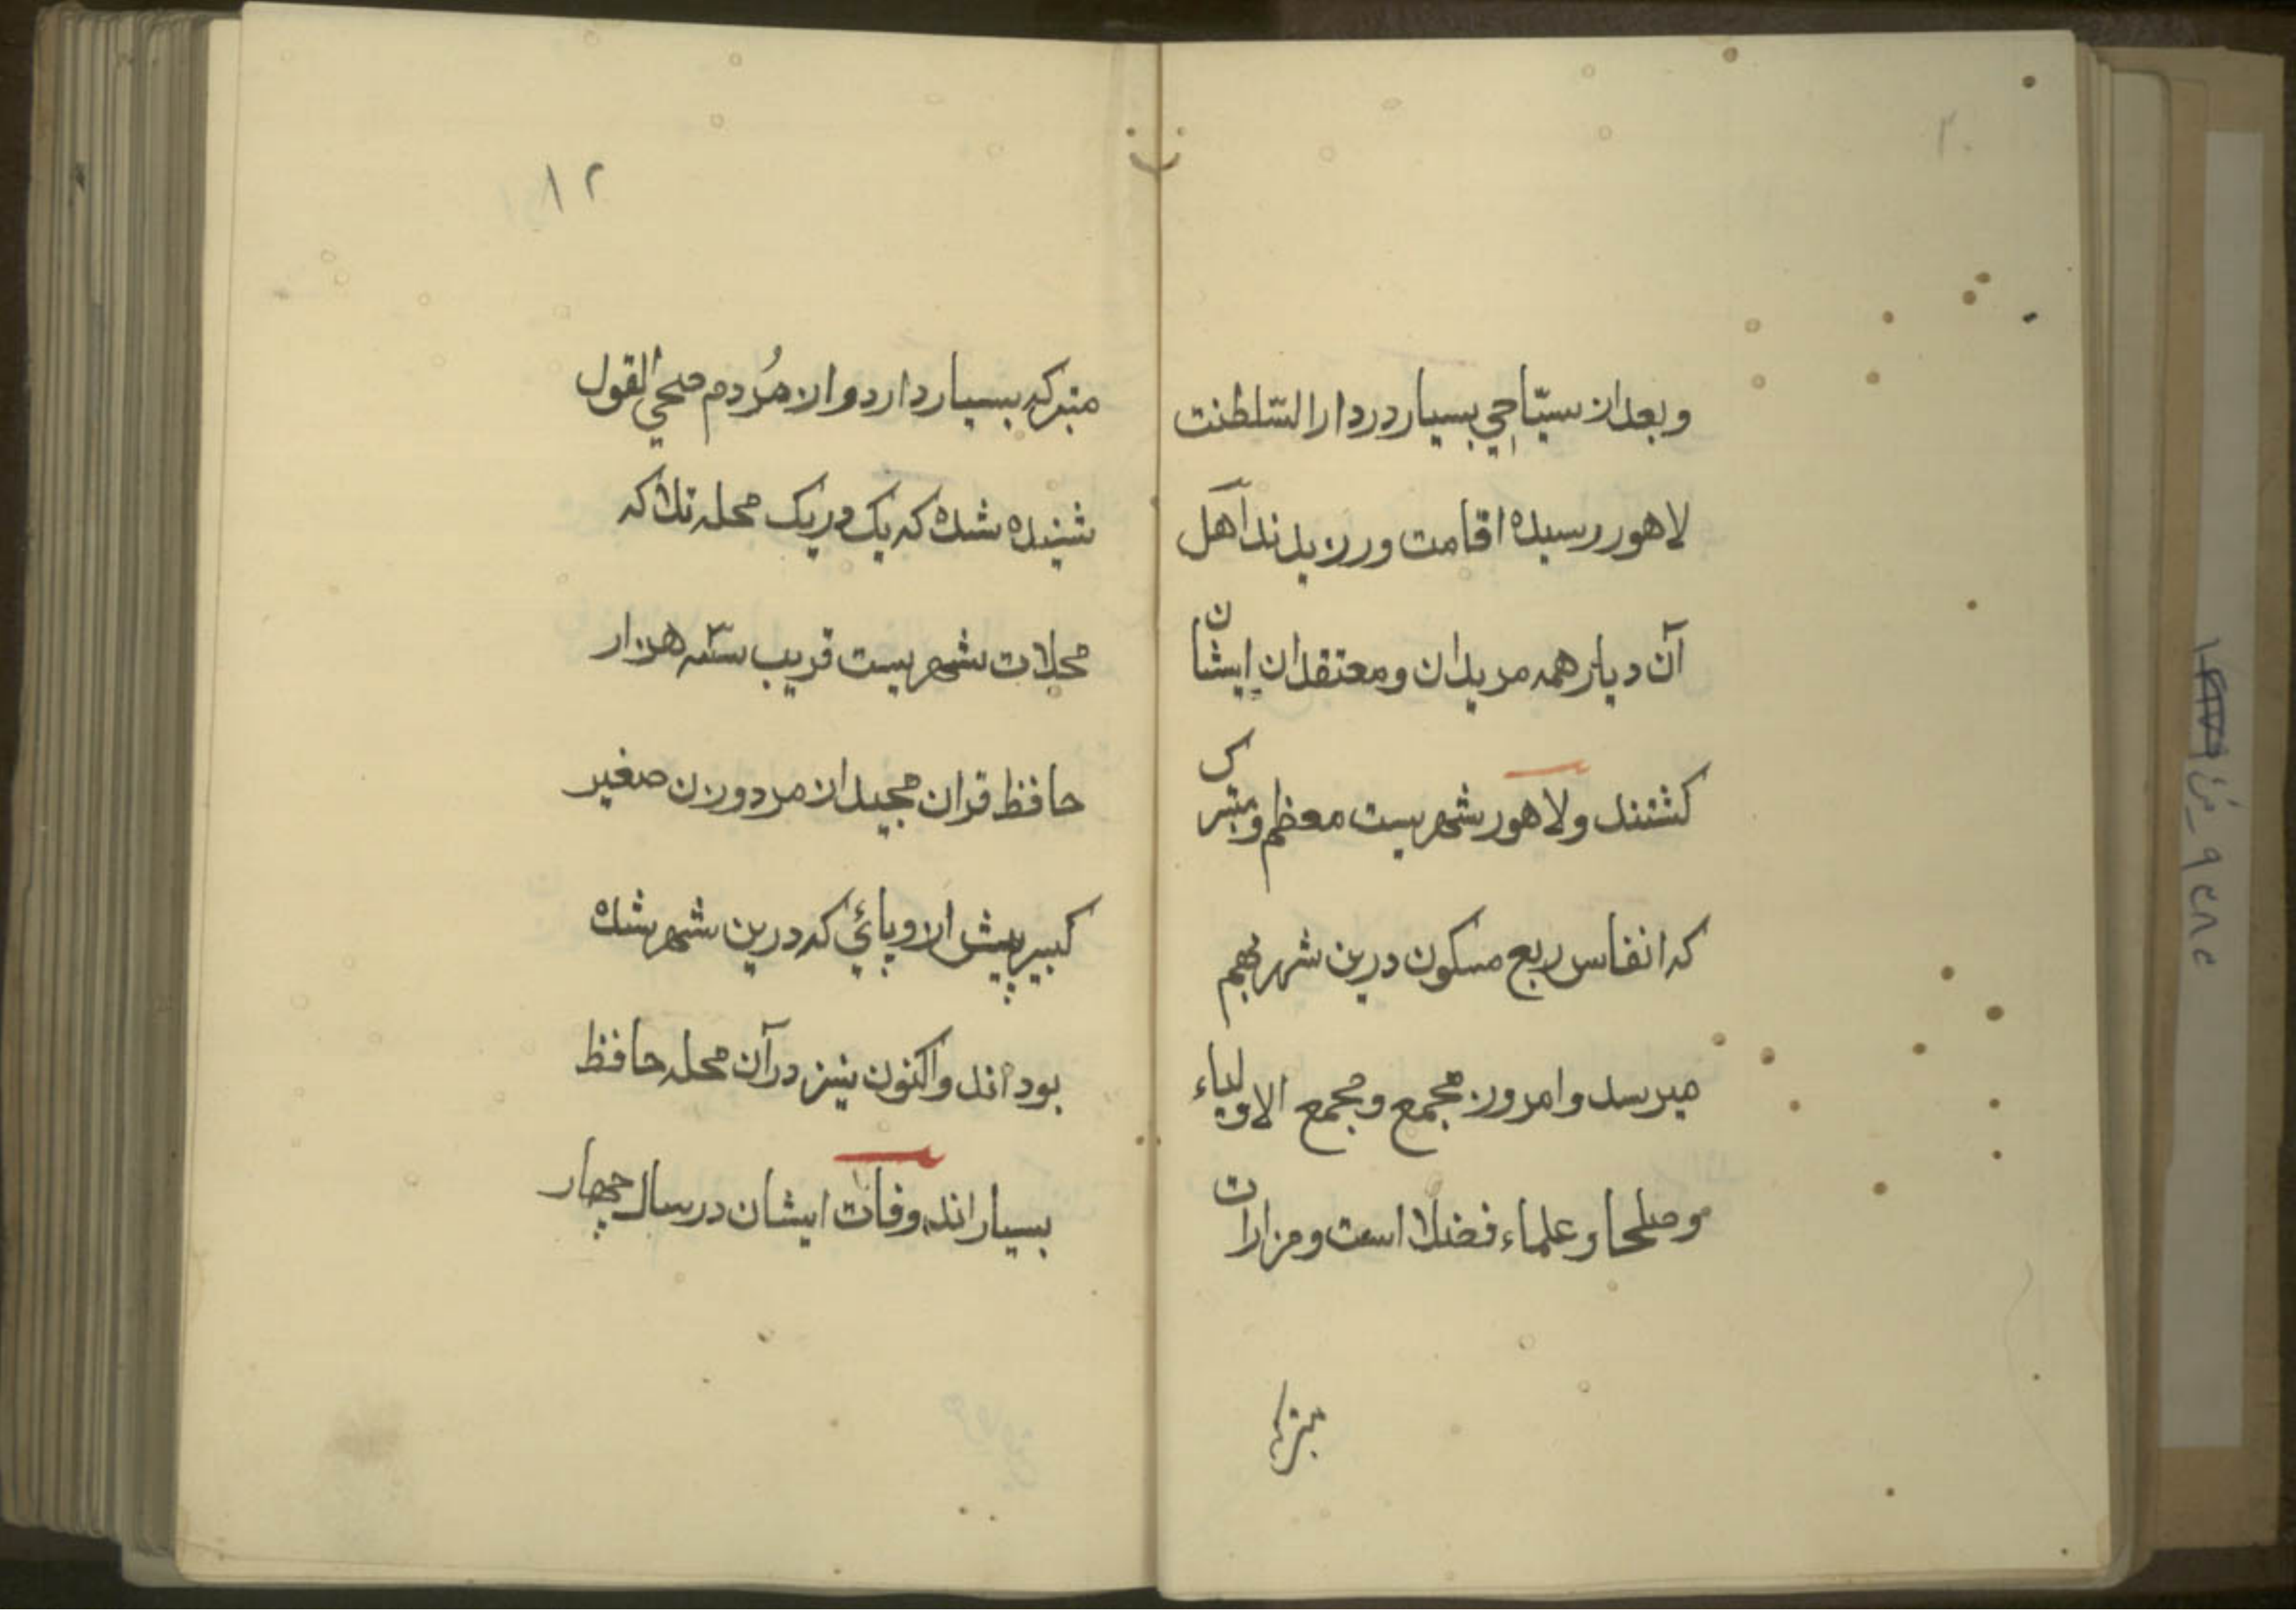 وبعد از سیّاحی بسیار در دار السّلطنت
لاهور رسیده اقامت ورزیدند اهل
آن دیار همه مریدان و معتقدان ایشان
کشتند و لاهور شهریست معظم و متبرک
که انفاس ربع مسکون درین شهر بهم
میرسد و امروز مجمع و مجمع الاولیاء
و صلحا و علماء فضلا است و مزارات
متبرکه
۱۲
متبرکه بسیار دارد و از مُردم صحیح القول
شنیده شده که یک در یک محله تلا که
محلات شهریست قریب سّه هزار
حافظ قران مجید از مرد و زن صغیر
کبیر پیش از وبائی که درین شهر شده
بوده اند و اکنون نیز در آن محله حافظ
بسیار اند وفات ایشان در سال چهار